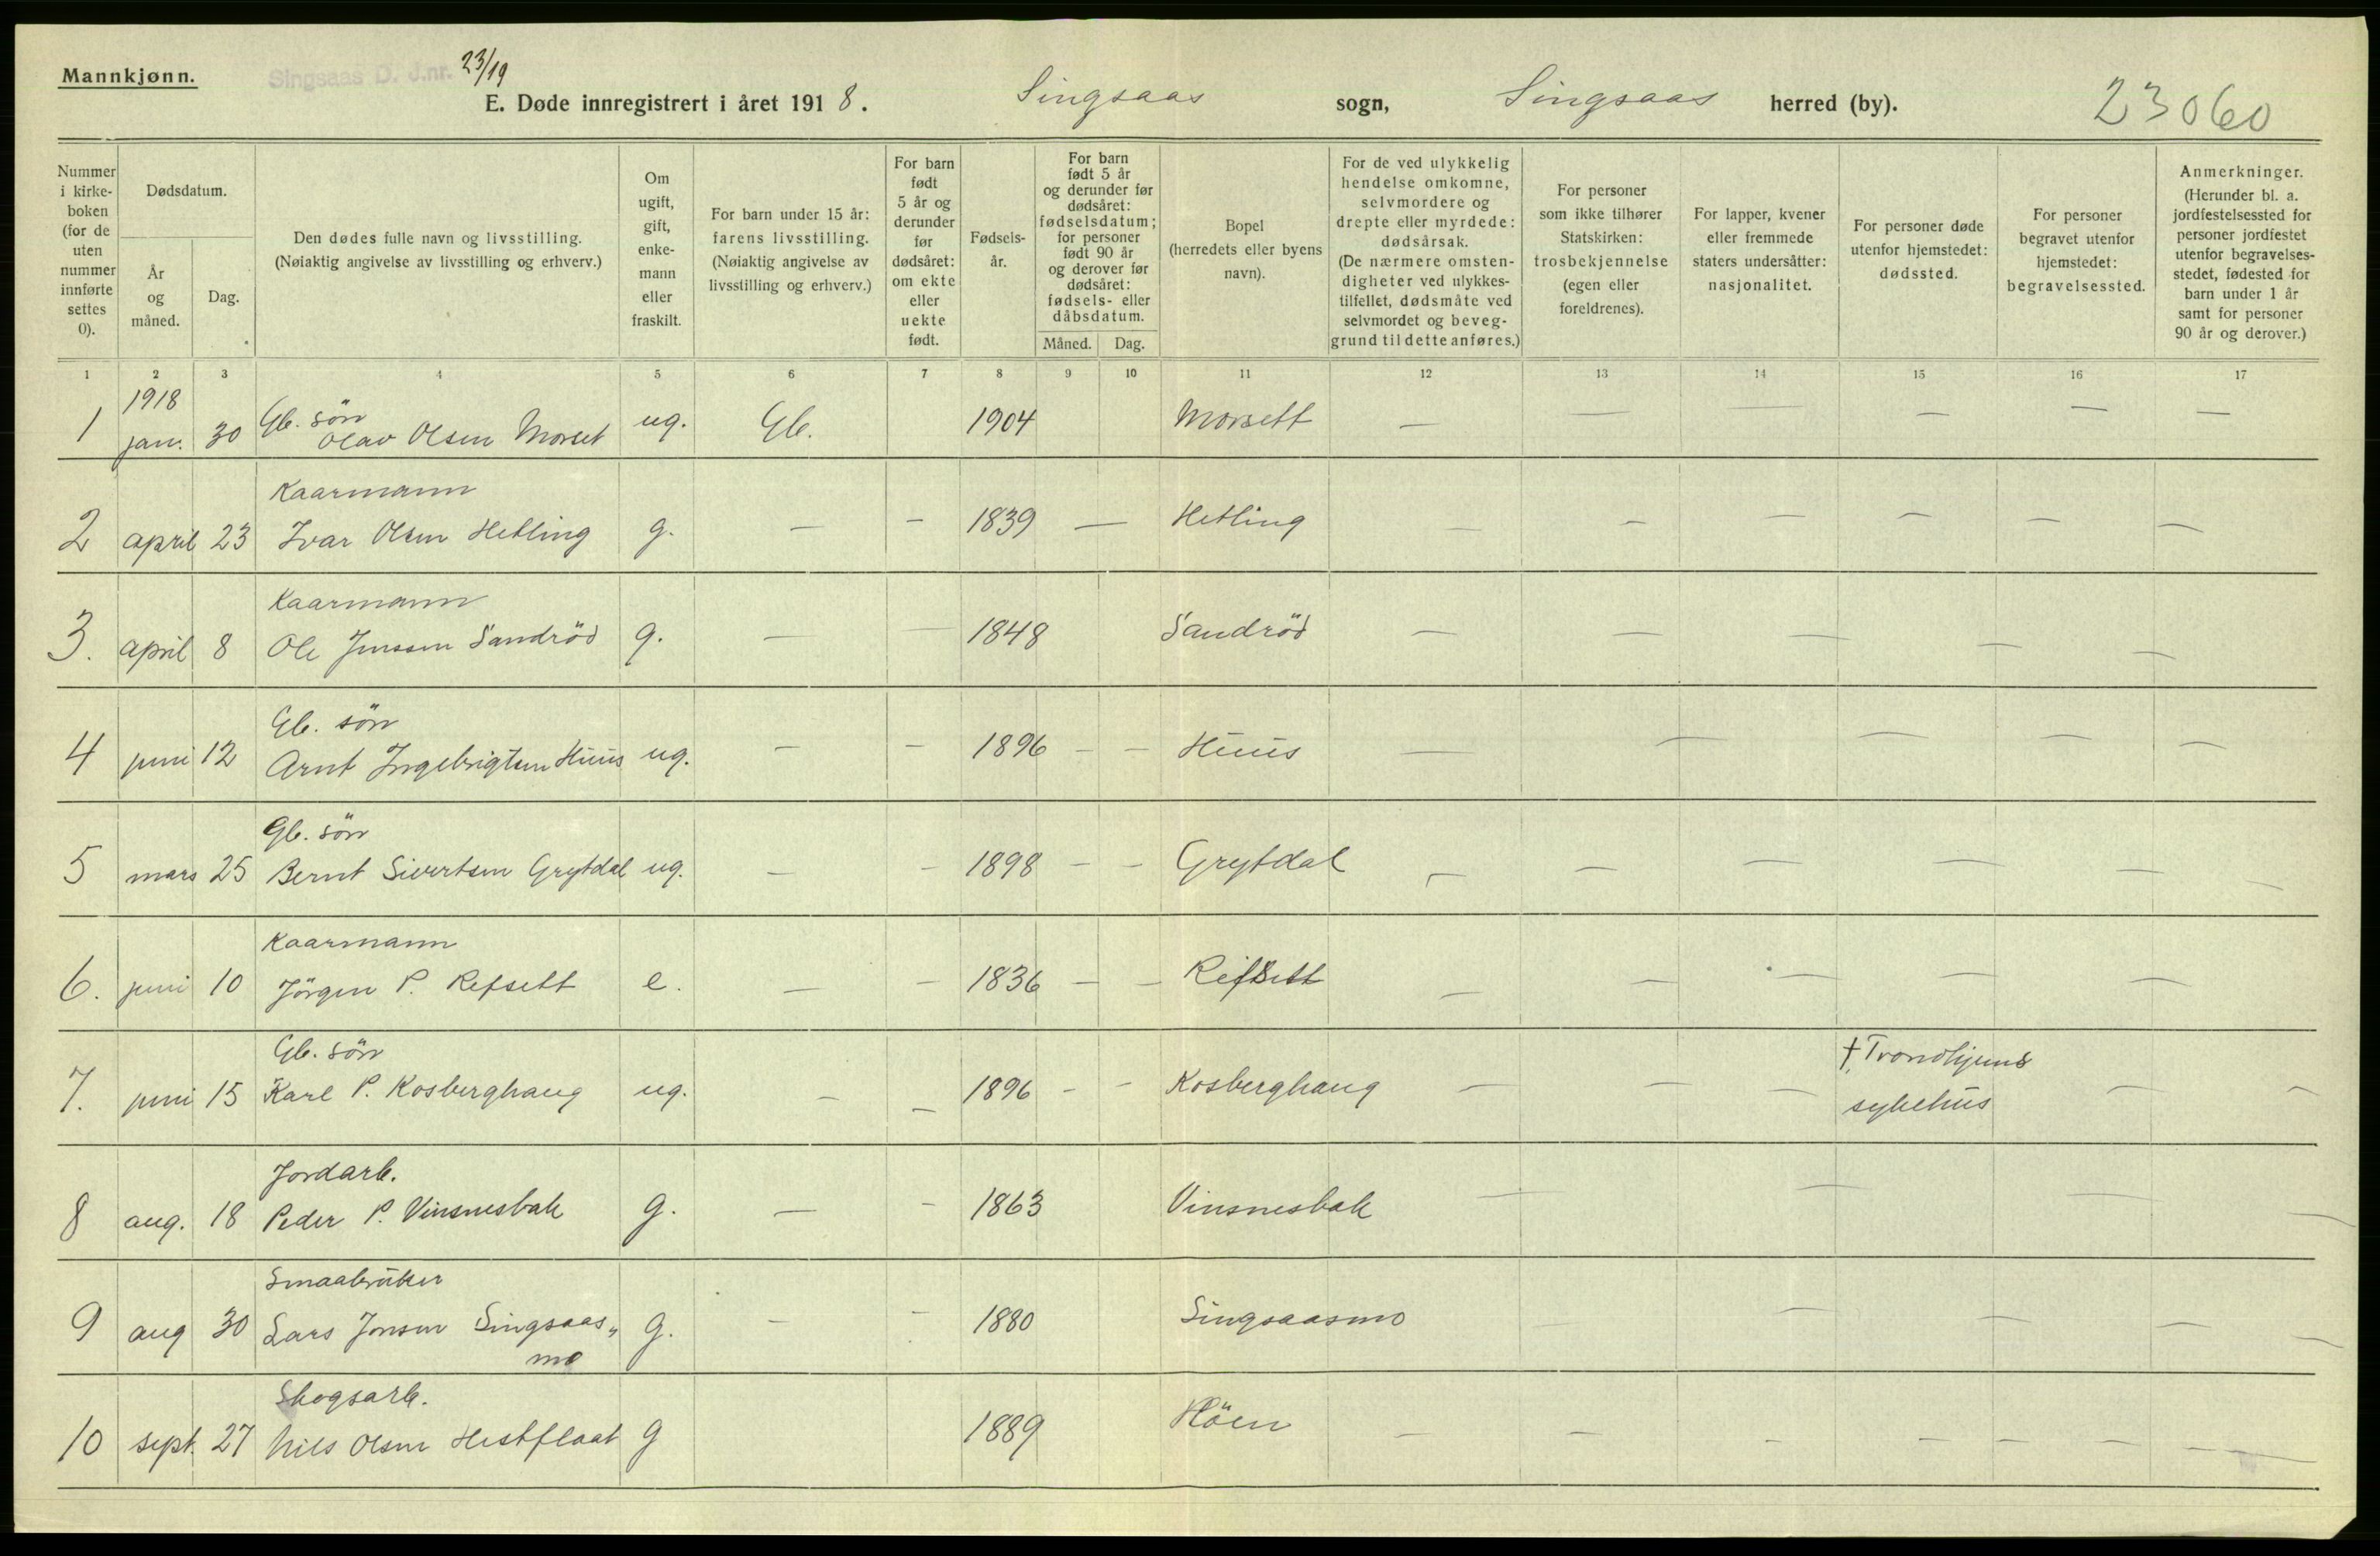 Mannkjønn.
Singsaas D. J.nr. 23/19
E. Døde innregistrert i året 1918. Singsaas sogn, Singsaas herred (by). 23060
Nummer i kirke-boken (for de uten nummer innførte settes 0).
Dødsdatum.
År og måned.
Dag.
Den dødes fulle navn og livsstilling. (Nøiaktig angivelse av livsstilling og erhverv.)
Om ugift, gift, enke-mann eller fraskilt.
For barn under 15 år: farens livsstilling. (Nøiaktig angivelse av livsstilling og erhverv.)
For barn født 5 år og derunder før dødsåret: om ekte eller uekte født.
Fødsels-år.
For barn født 5 år og derunder før dødsåret: fødselsdatum; for personer født 90 år og derover før dødsåret: fødsels- eller dåbsdatum.
Måned. Dag.
Bopel (herredets eller byens navn).
For de ved ulykkelig hendelse omkomne, selvmordere og drepte eller myrdede: dødsårsak. (De nærmere omsten-digheter ved ulykkes-tilfellet, dødsmåte ved selvmordet og beveg-grund til dette anføres.)
For personer som ikke tilhører Statskirken: trosbekjennelse (egen eller foreldrenes).
For lapper, kvener eller fremmede staters undersåtter: nasjonalitet.
For personer døde utenfor hjemstedet: dødssted.
For personer begravet utenfor hjemstedet: begravelsessted.
Anmerkninger. (Herunder bl. a. jordfestelsessted for personer jordfestet utenfor begravelses-stedet, fødested for barn under 1 år samt for personer 90 år og derover.)
1 2 3 4 5 6 7 8 9 10 11 12 13 14 15 16 17
1918
Gb. sön
1 jan. 30 Olav Olsen Morset ug. Gb. 1904 Morsett — — — — — —
Kaarmann
2 april 23 Ivar Olsen Hetling g. — — 1839 — Hetling — — — — — —
Kaarmann
3. april 8 Ole Jenssen Sandröd g. — — 1848 Sandröd — — — — —
Gb. sön
4 juni 12 Arnt Ingebrigtsen Huus ug. — — 1896 — — Huus — — — — —
Gb. sön
5 mars 25 Bernt Sivertsen Grytdal ug. — — 1898 — — Grytdal — — — — — —
Kaarmann
6. juni 10 Jörgen P. Refsett e. — — 1836 — — Refsett — — — — —
Gb. sön
7. juni 15 Karl P. Kosberghaug ug. — — 1896 — — Kosberghaug — — — † Trondhjems — —
sykehus
Jordarb.
8 aug. 18 Peder P. Vinsnesbak g. — — 1863 Vinsnesbak — — — —
Smaabruker
9 aug 30 Lars Jonsen Singsaas„ g. — — 1880 Singsaasmo — — — — —
mo
Skogsarb.
10 sept. 27 Nils Olsen Hestflaat g 1889 Höen — — — — — — —